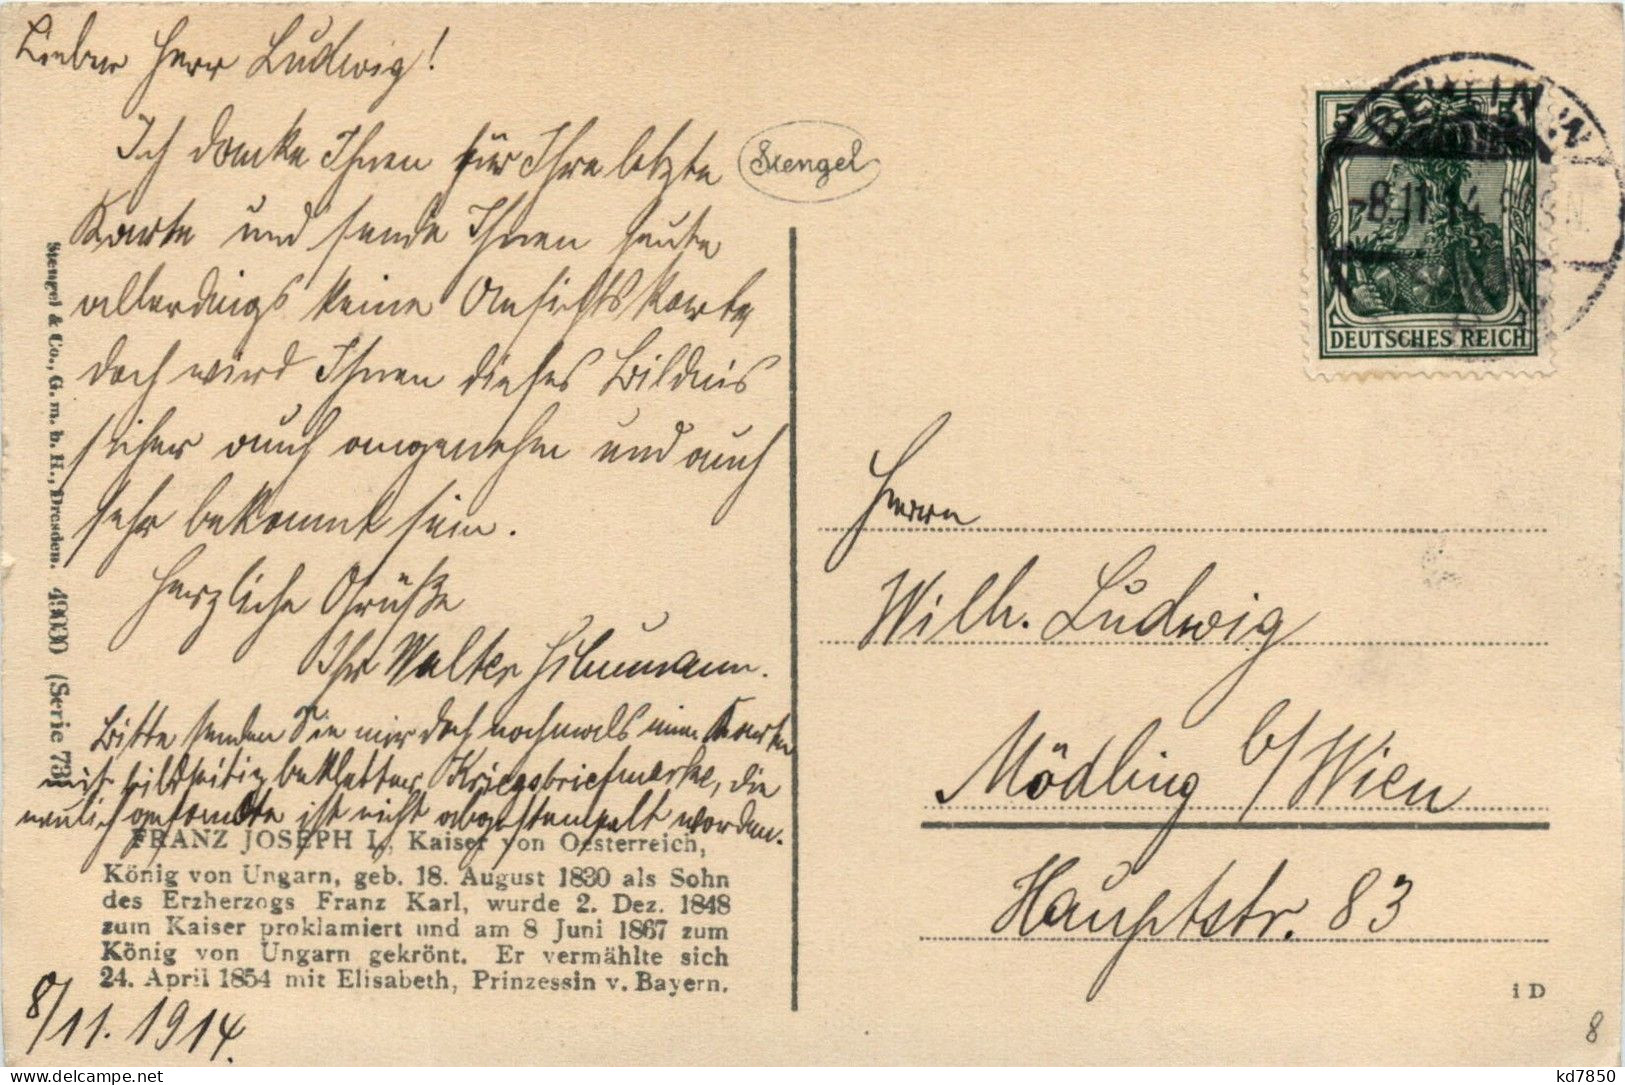 Lieber Herr Ludwig!
Ich danke Ihnen für Ihre letzte
Karte und sende Ihnen heute
allerdings keine Ansichtskarte,
doch wird Ihnen dieses Bildnis
sicher auch angenehm und auch
sehr bekannt sein.
Herzliche Grüße
Ihr Walter
Bitte senden Sie mir doch nochmals eine Karte
mit bildseitig beklebter Kriegsbriefmarke, die
neulich gesandte ist nicht abgestempelt worden.
FRANZ JOSEPH I., Kaiser von Oesterreich,
König von Ungarn, geb. 18. August 1830 als Sohn
des Erzherzogs Franz Karl, wurde 2. Dez. 1848
zum Kaiser proklamiert und am 8 Juni 1867 zum
König von Ungarn gekrönt. Er vermählte sich
24. April 1854 mit Elisabeth, Prinzessin v. Bayern.
8/11. 1914.
Stengel & Co., G. m. b. H., Dresden. 49030 (Serie 73)
Stengel
5 5
BERLIN
8.11.14
DEUTSCHES REICH
Herrn
Wilh. Ludwig
Mödling b/Wien
Hauptstr. 83
i D
8
kd7850